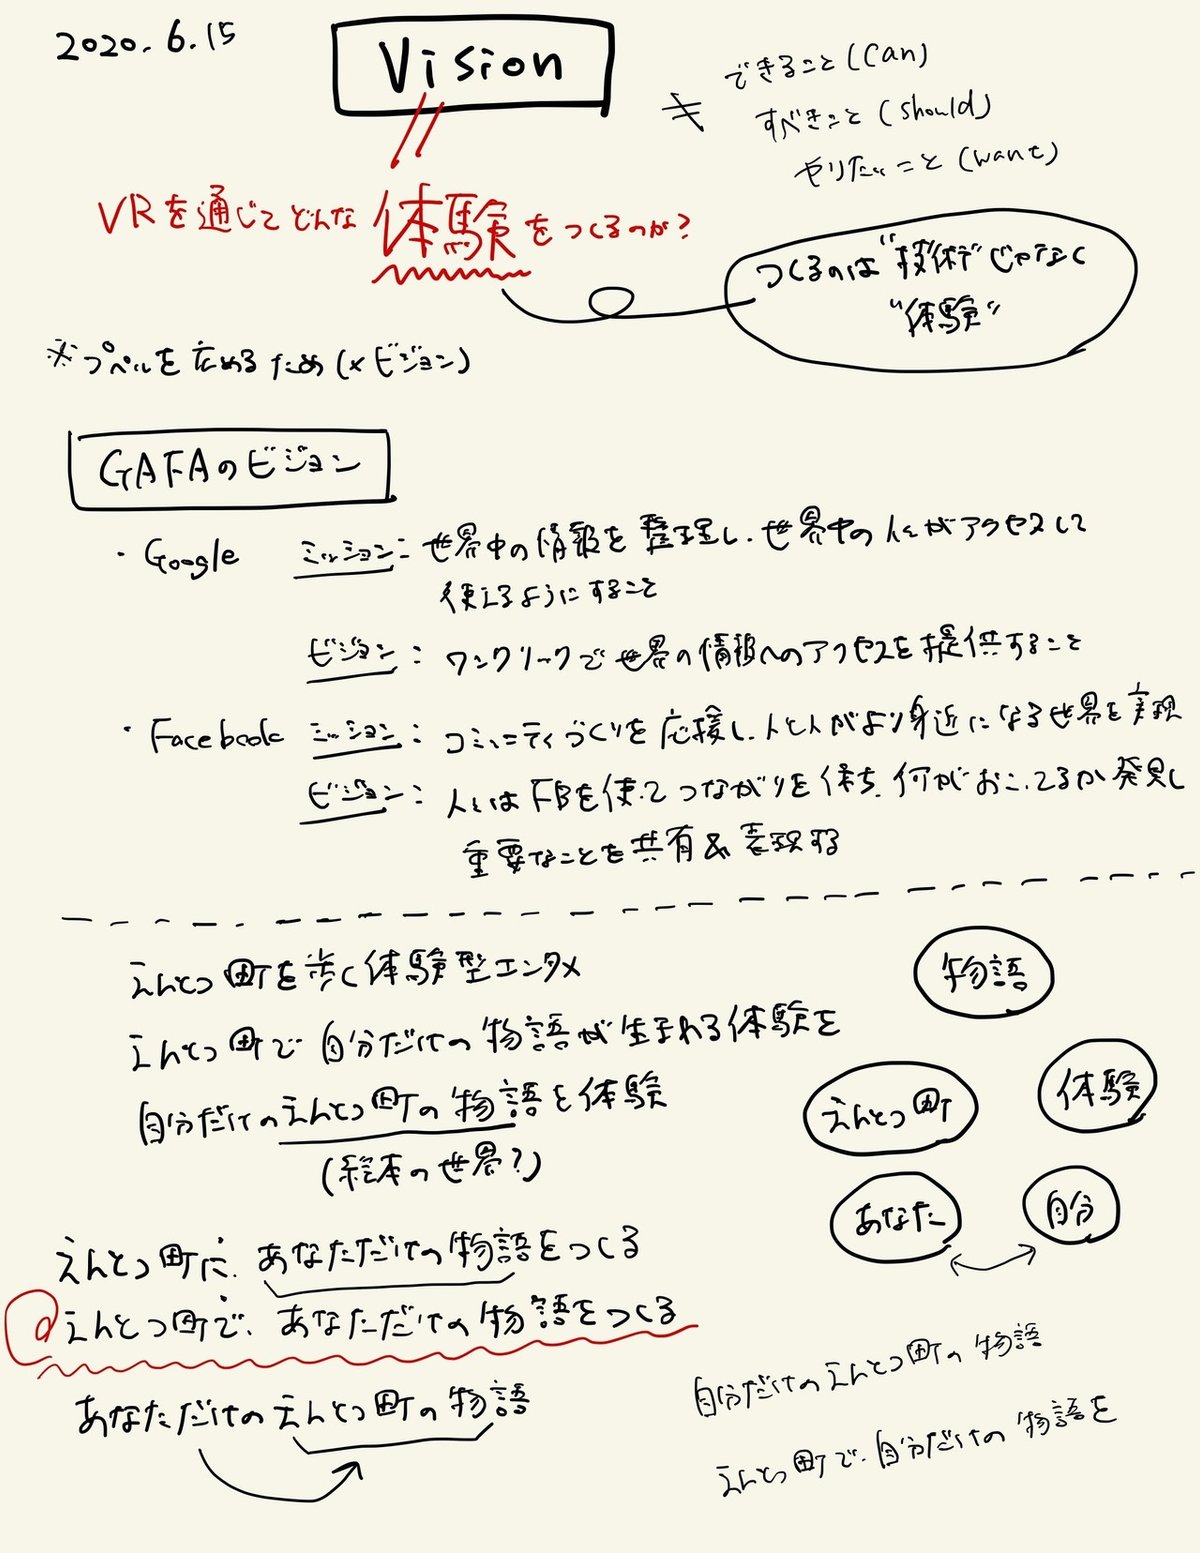 2020.6.15
Vision
≠
できること(can)
すべきこと(should)
やりたいこと(want)
VRを通じてどんな体験をつくるのか?
つくるのは"技術"じゃなく
"体験"
※プペルを広めるため(×ビジョン)
GAFAのビジョン
・Google ミッション:世界中の情報を整理し、世界中の人々がアクセスして
使えるようにすること
ビジョン:ワンクリックで世界の情報へのアクセスを提供すること
・Facebook ミッション:コミュニティづくりを応援し、人と人がより身近になる世界を実現
ビジョン:人々はFBを使ってつながりを保ち、何がおこってるか発見し
重要なことを共有&表現する
えんとつ町を歩く体験型エンタメ
えんとつ町で自分だけの物語が生まれる体験を
自分だけのえんとつ町の物語を体験
(絵本の世界?)
物語
体験
えんとつ町
あなた
自分
えんとつ町に、あなただけの物語をつくる
えんとつ町で、あなただけの物語をつくる
あなただけのえんとつ町の物語
自分だけのえんとつ町の物語
えんとつ町で、自分だけの物語を